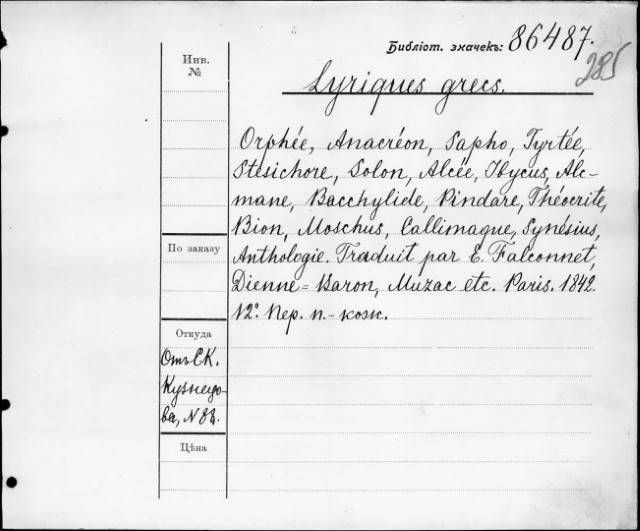 Библіот. значекъ: 86487.
285
Инв.
№
Lyriques grecs.
Orphée, Anacréon, Sapho, Tyrtée,
Stesichore, Solon, Alcée, Ibycus, Alc-
mane, Bacchylide, Pindare, Théocrite,
Bion, Moschus, Callimaque, Synésius,
Anthologie. Traduit par E. Falconnet,
Dienne=Baron, Muzac etc. Paris. 1842.
12°. Пер. п.-кож.
По заказу
Откуда
Отъ С.К.
Кузнецо-
ва, N 88.
Цѣна